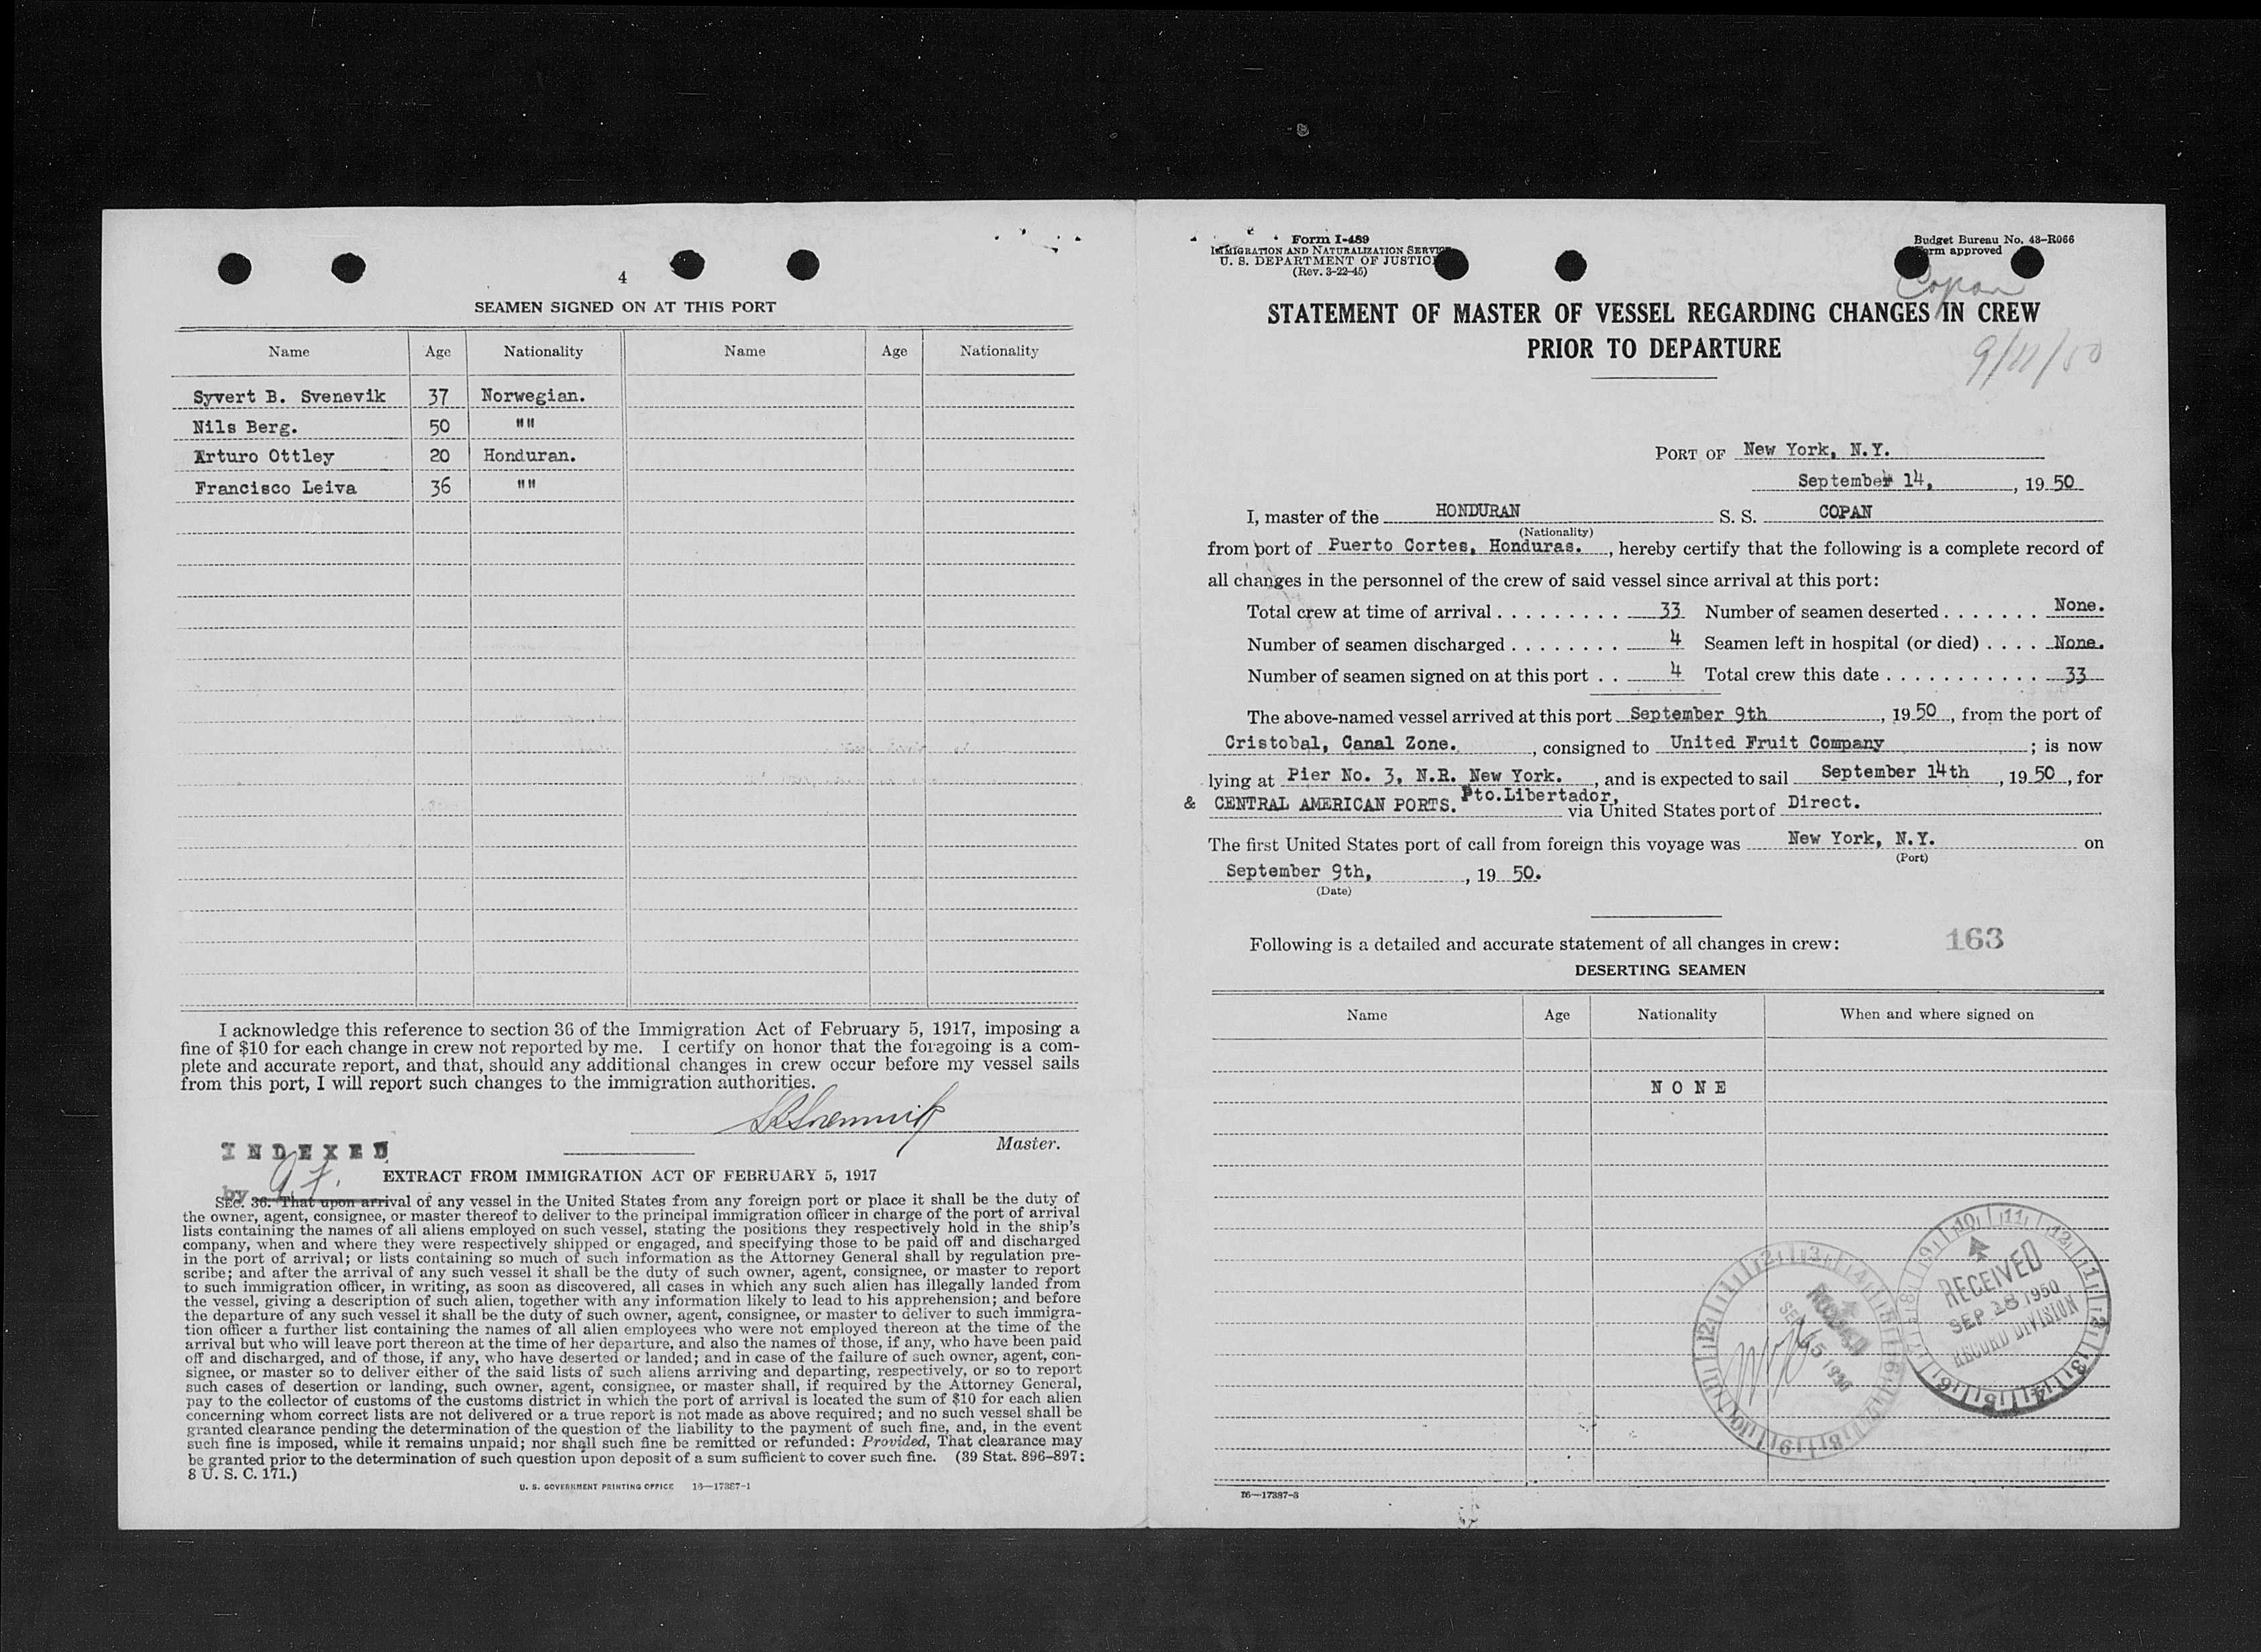 4
SEAMEN SIGNED ON AT THIS PORT
Name Age Nationality Name Age Nationality
Syvert B. Svenevik 37 Norwegian.
Nils Berg. 50 ""
Arturo Ottley 20 Honduran.
Francisco Leiva 36 ""
I acknowledge this reference to section 36 of the Immigration Act of February 5, 1917, imposing a
fine of $10 for each change in crew not reported by me. I certify on honor that the foregoing is a com-
plete and accurate report, and that, should any additional changes in crew occur before my vessel sails
from this port, I will report such changes to the immigration authorities.
Master.
INDEXED
by
EXTRACT FROM IMMIGRATION ACT OF FEBRUARY 5, 1917
SEC. 36. That upon arrival of any vessel in the United States from any foreign port or place it shall be the duty of
the owner, agent, consignee, or master thereof to deliver to the principal immigration officer in charge of the port of arrival
lists containing the names of all aliens employed on such vessel, stating the positions they respectively hold in the ship's
company, when and where they were respectively shipped or engaged, and specifying those to be paid off and discharged
in the port of arrival; or lists containing so much of such information as the Attorney General shall by regulation pre-
scribe; and after the arrival of any such vessel it shall be the duty of such owner, agent, consignee, or master to report
to such immigration officer, in writing, as soon as discovered, all cases in which any such alien has illegally landed from
the vessel, giving a description of such alien, together with any information likely to lead to his apprehension; and before
the departure of any such vessel it shall be the duty of such owner, agent, consignee, or master to deliver to such immigra-
tion officer a further list containing the names of all alien employees who were not employed thereon at the time of the
arrival but who will leave port thereon at the time of her departure, and also the names of those, if any, who have been paid
off and discharged, and of those, if any, who have deserted or landed; and in case of the failure of such owner, agent, con-
signee, or master so to deliver either of the said lists of such aliens arriving and departing, respectively, or so to report
such cases of desertion or landing, such owner, agent, consignee, or master shall, if required by the Attorney General,
pay to the collector of customs of the customs district in which the port of arrival is located the sum of $10 for each alien
concerning whom correct lists are not delivered or a true report is not made as above required; and no such vessel shall be
granted clearance pending the determination of the question of the liability to the payment of such fine, and, in the event
such fine is imposed, while it remains unpaid; nor shall such fine be remitted or refunded: Provided, That clearance may
be granted prior to the determination of such question upon deposit of a sum sufficient to cover such fine. (39 Stat. 896-897;
8 U. S. C. 171.)
U. S. GOVERNMENT PRINTING OFFICE 16—17387-1
Form I-489
IMMIGRATION AND NATURALIZATION SERVICE
U. S. DEPARTMENT OF JUSTICE
(Rev. 3-22-45)
Budget Bureau No. 43-R066
Form approved
Copan
STATEMENT OF MASTER OF VESSEL REGARDING CHANGES IN CREW
PRIOR TO DEPARTURE
9/11/50
PORT OF New York, N.Y.
September 14, , 19 50
I, master of the HONDURAN S. S. COPAN
(Nationality)
from port of Puerto Cortes, Honduras. , hereby certify that the following is a complete record of
all changes in the personnel of the crew of said vessel since arrival at this port:
Total crew at time of arrival . . . . . . . . . . 33 Number of seamen deserted . . . . . . . None.
Number of seamen discharged . . . . . . . . 4 Seamen left in hospital (or died) . . . . None.
Number of seamen signed on at this port . . 4 Total crew this date . . . . . . . . . . . 33
The above-named vessel arrived at this port September 9th , 19 50 , from the port of
Cristobal, Canal Zone. , consigned to United Fruit Company ; is now
lying at Pier No. 3, N.R. New York. , and is expected to sail September 14th , 19 50 , for
& CENTRAL AMERICAN PORTS. Pto.Libertador, via United States port of Direct.
The first United States port of call from foreign this voyage was New York, N.Y. on
(Port)
September 9th, , 19 50.
(Date)
Following is a detailed and accurate statement of all changes in crew: 163
DESERTING SEAMEN
Name Age Nationality When and where signed on
NONE
RECEIVED
SEP 18 1950
RECORD DIVISION
16—17387-3